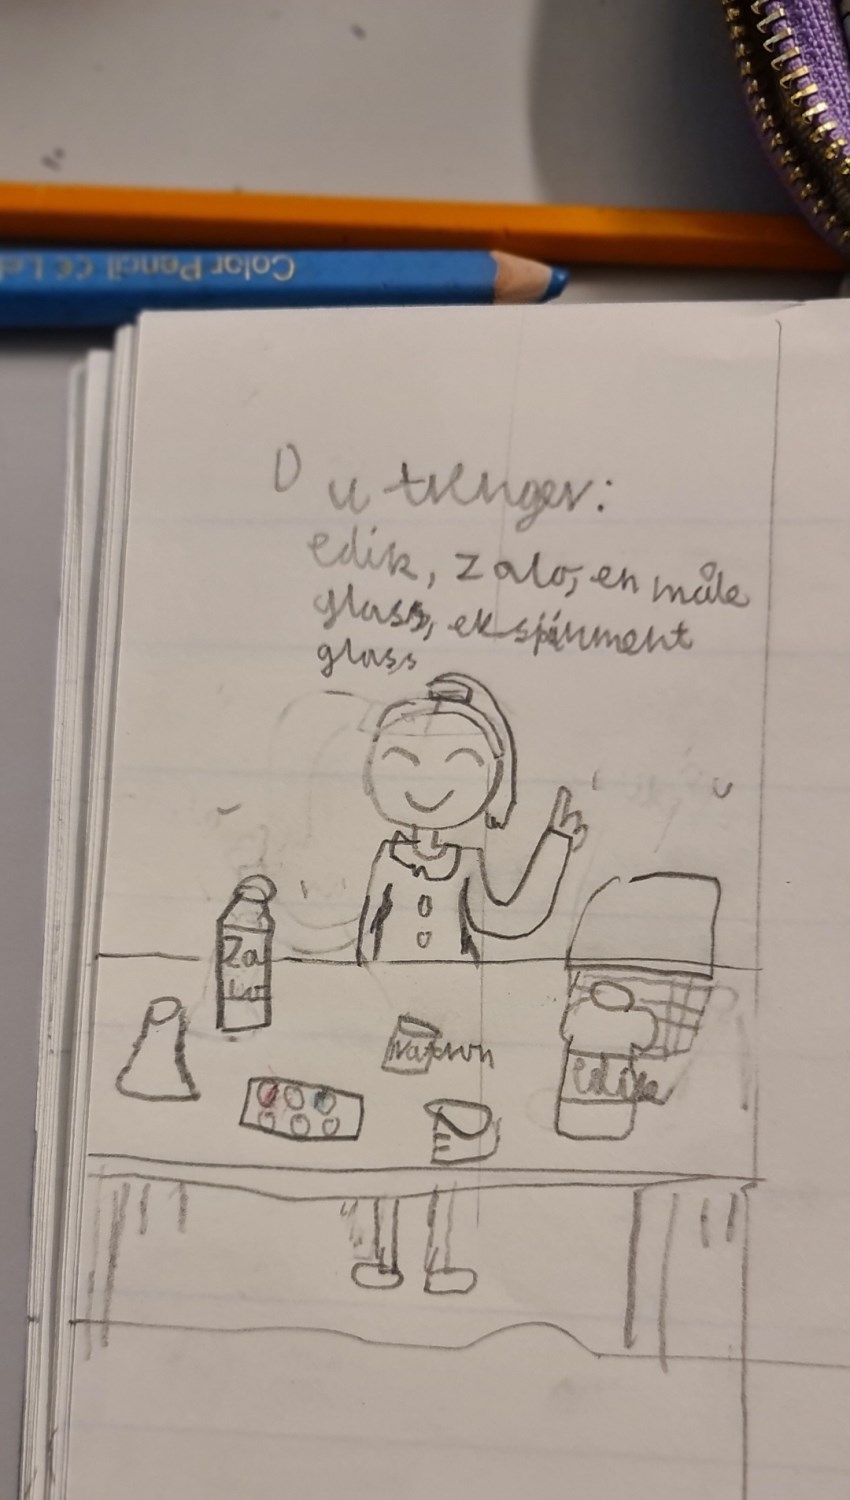 Color Pencil CE Lel
Du trenger:
edik, zalo, en måle
glass, ekspiriment
glass
Za
Lo
Natron
edik